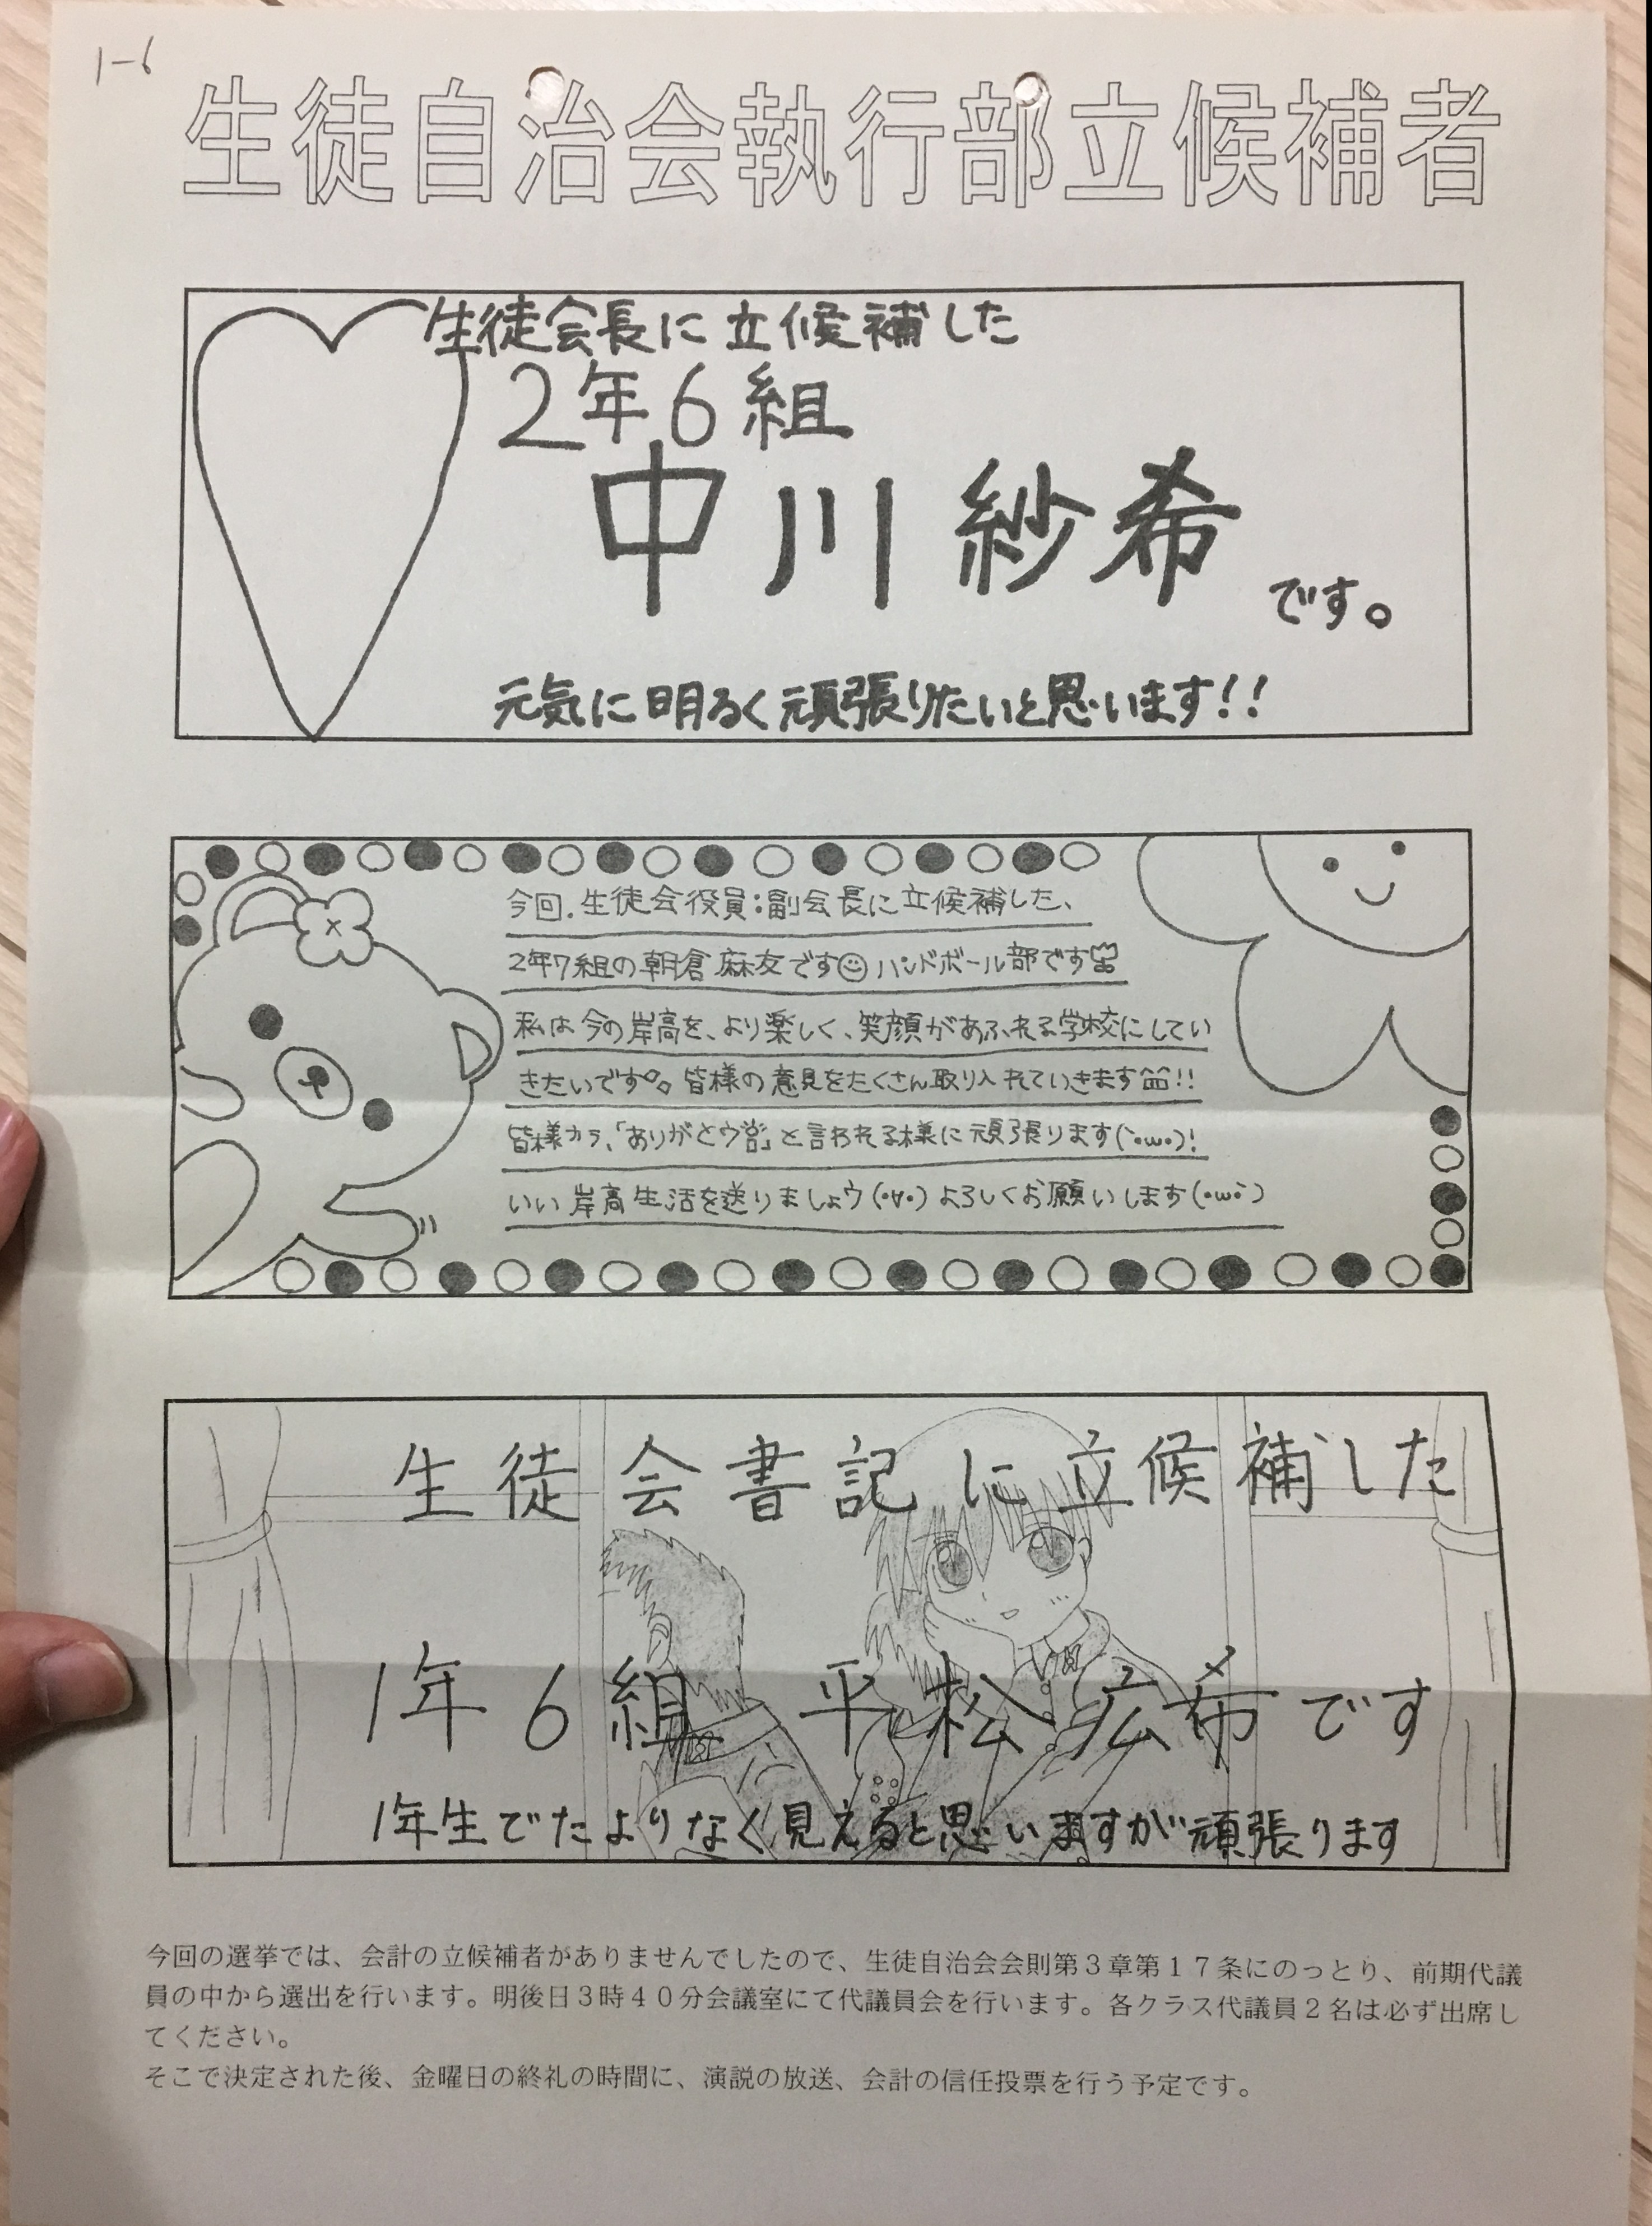 1-6
生徒自治会執行部立候補者
生徒会長に立候補した
2年6組
中川紗希
です。
元気に明るく頑張りたいと思います!!
今回.生徒会役員:副会長に立候補した、
2年7組の朝倉麻友です☺ハンドボール部です
私は今の岸高を、より楽しく、笑顔があふれる学校にしてい
きたいです。皆様の意見をたくさん取り入れていきます!!
皆様カラ、「ありがとウ」と言われる様に頑張ります(`•ω•)!
いい岸高生活を送りましょウ(•∀•)よろしくお願いします(•ω•`)
生徒会書記に立候補した
1年6組 平松広希です
1年生でたよりなく見えると思いますが頑張ります
今回の選挙では、会計の立候補者がありませんでしたので、生徒自治会会則第3章第17条にのっとり、前期代議
員の中から選出を行います。明後日3時40分会議室にて代議員会を行います。各クラス代議員2名は必ず出席し
てください。
そこで決定された後、金曜日の終礼の時間に、演説の放送、会計の信任投票を行う予定です。